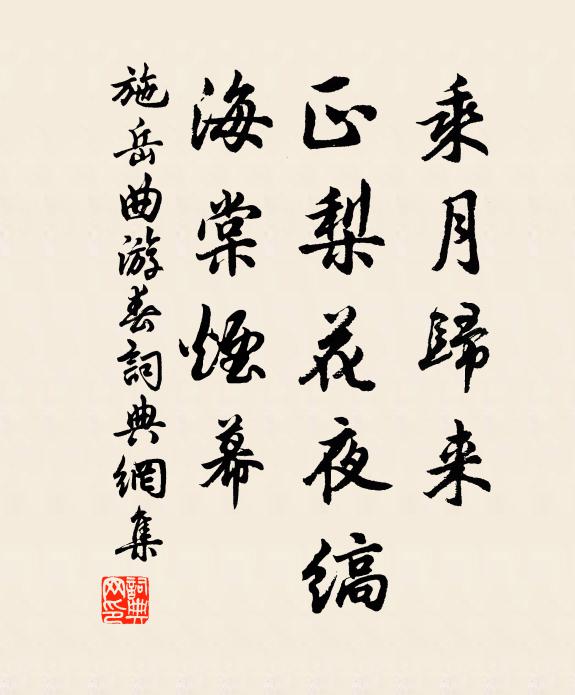 乘月歸来
正梨花夜縞
海棠煙幕
施岳曲游春詞典網集
詞典网印